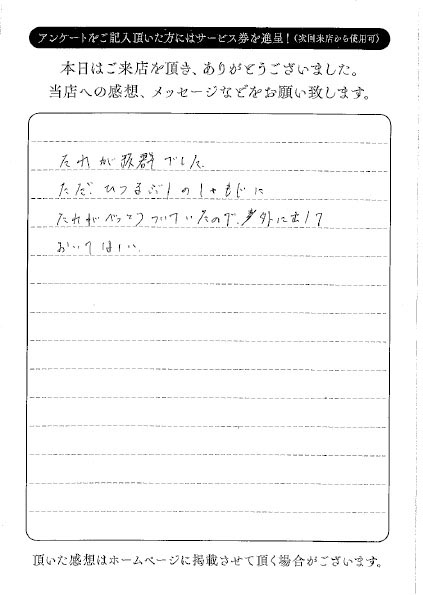 アンケートをご記入頂いた方にはサービス券を進呈！(次回来店から使用可)
本日はご来店を頂き、ありがとうございました。
当店への感想、メッセージなどをお願い致します。
たれが抜群でした
ただ、ひつまぶしのしゃもじに
たれがべっとりついていたので、外に出して
おいてほしい。
頂いた感想はホームページに掲載させて頂く場合がございます。